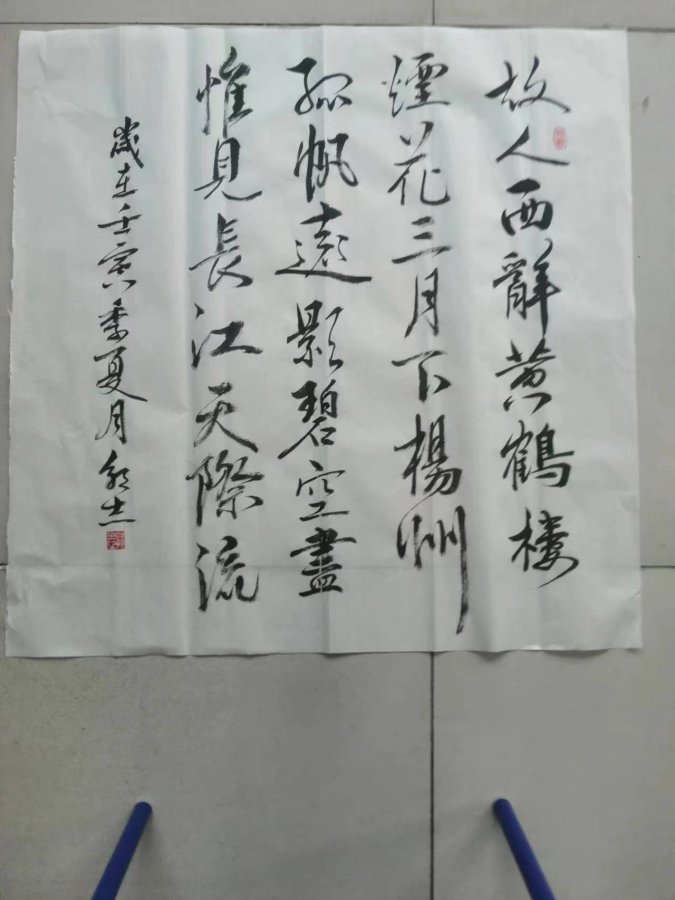 故人西辭黃鶴樓
煙花三月下楊州
孤帆遠影碧空盡
惟見長江天際流
歲在壬寅季夏月